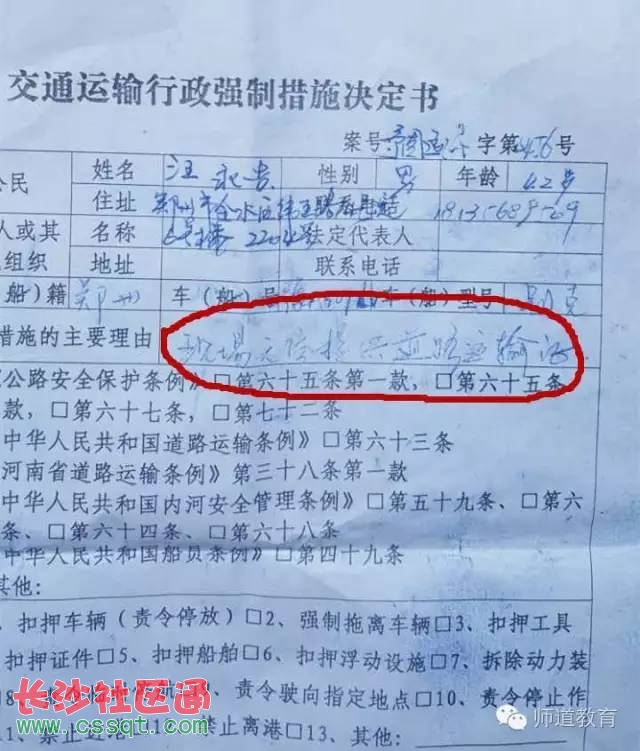 交通运输行政强制措施决定书
案号 字第456号
公民 姓名 汪永贵 性别 男 年龄 42岁
住址 郑州市金水区
人或其 名称 法定代表人
组织 地址 联系电话
船)籍 郑州 车(船)号 车(船)型号 别克
措施的主要理由 现场无法提供道路运输
《公路安全保护条例》□第六十五条第一款,□第六十五条
款,□第六十七条,□第七十二条
中华人民共和国道路运输条例》□第六十三条
河南省道路运输条例》第三十八条第一款
中华人民共和国内河安全管理条例》□第五十九条、□第六
条、□第六十四条、□第六十八条
中华人民共和国船员条例》□第四十九条
其他:
、扣押车辆(责令停放)□2、强制拖离车辆□3、扣押工具
扣押证件□5、扣押船舶□6、扣押浮动设施□7、拆除动力装
□8、 □9、责令驶向指定地点□10、责令停止作
□11、禁止进港□ 禁止离港□13、其他:
长沙社区通
www.cssqt.com
师道教育